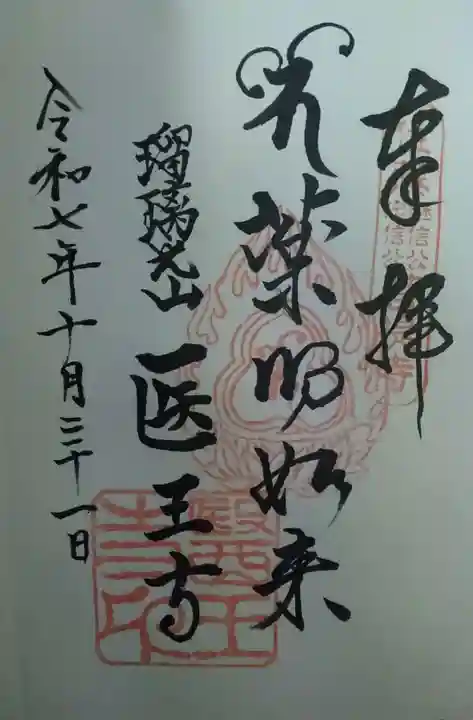 奉拝
薬師如来
瑠璃光山 医王寺
令和七年十月三十一日
醫王寺印